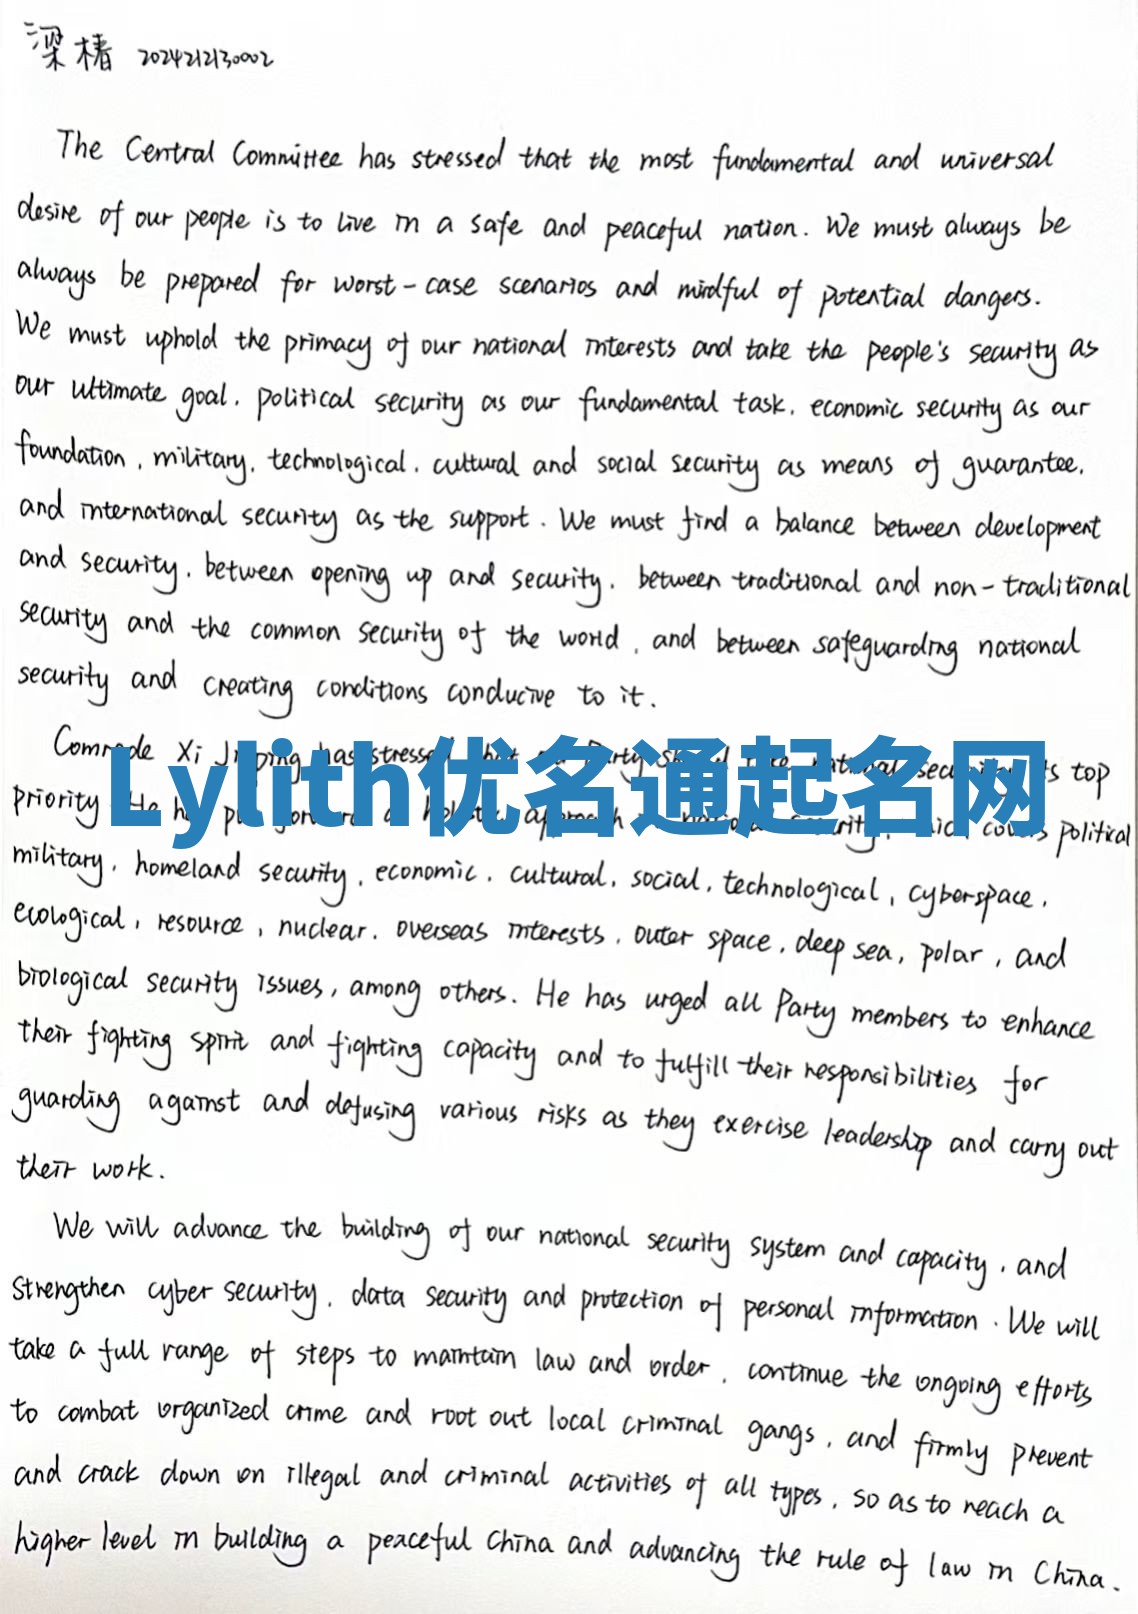 梁椿 2024212130002
The Central Committee has stressed that the most fundamental and universal
desire of our people is to live in a safe and peaceful nation. We must always be
always be prepared for worst-case scenarios and mindful of potential dangers.
We must uphold the primacy of our national interests and take the people's security as
our ultimate goal, political security as our fundamental task, economic security as our
foundation, military, technological, cultural and social security as means of guarantee,
and international security as the support. We must find a balance between development
and security, between opening up and security, between traditional and non-traditional
security and the common security of the world, and between safeguarding national
security and creating conditions conducive to it.
Comrade Xi Jinping has stressed top
Lylith优名通起名网
priority He political
military, homeland security, economic, cultural, social, technological, cyberspace,
ecological, resource, nuclear, overseas interests, outer space, deep sea, polar, and
biological security issues, among others. He has urged all Party members to enhance
their fighting spirit and fighting capacity and to fulfill their responsibilities for
guarding against and defusing various risks as they exercise leadership and carry out
their work.
We will advance the building of our national security system and capacity, and
strengthen cyber security, data security and protection of personal information. We will
take a full range of steps to maintain law and order, continue the ongoing efforts
to combat organized crime and root out local criminal gangs, and firmly prevent
and crack down on illegal and criminal activities of all types, so as to reach a
higher level in building a peaceful China and advancing the rule of law in China.